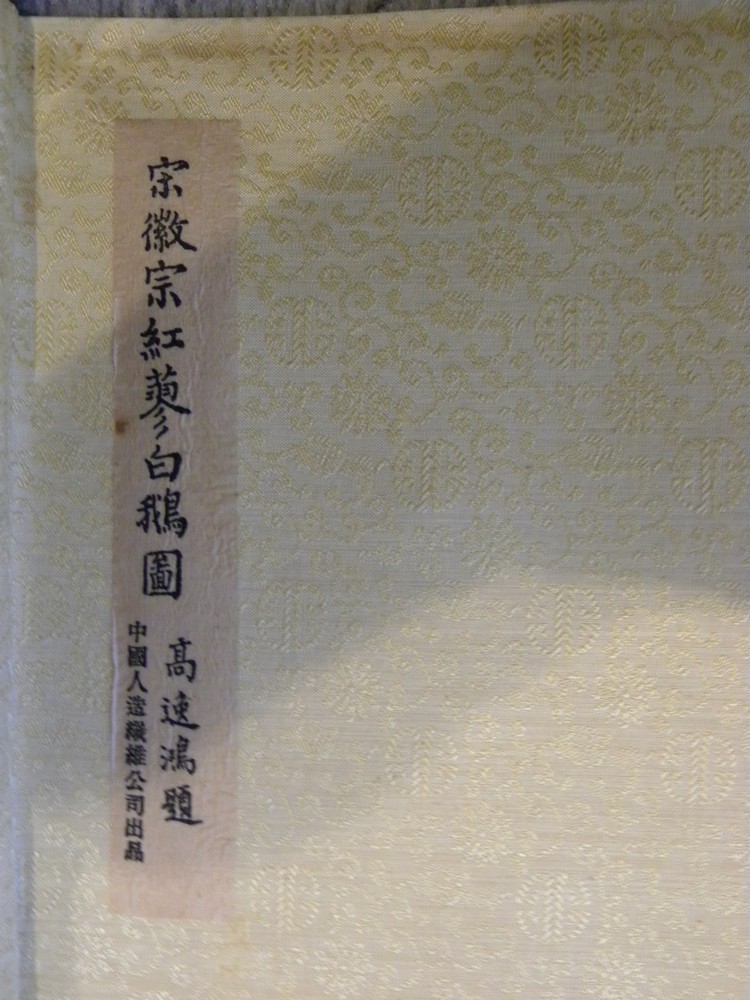 宋徽宗紅蓼白鵝圖
高逸鴻題
中國人造纖維公司出品